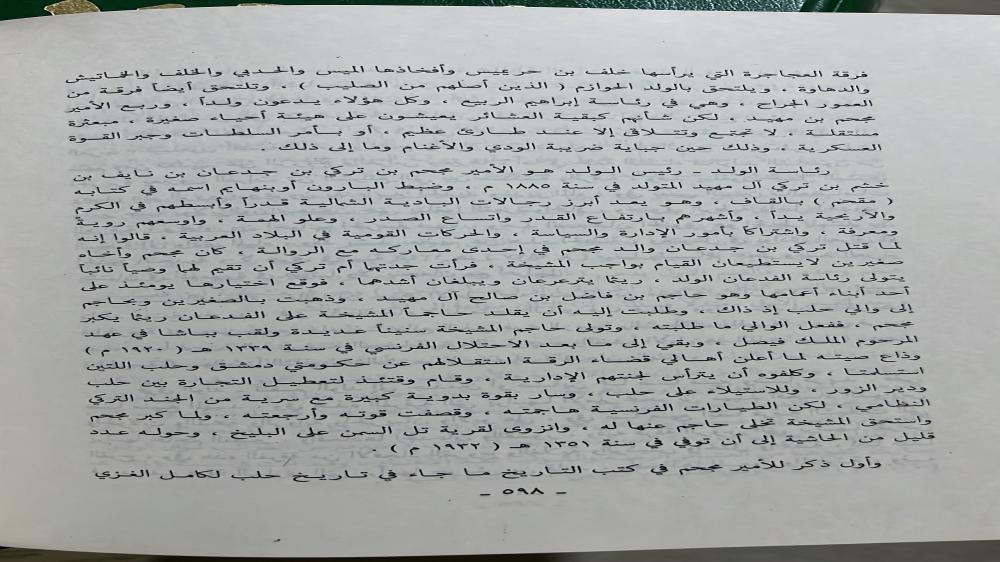 فرقة العجاجرة التي يرأسها خلف بن حريميس وأفخاذها الميس والحدبي والخلف والخاتيش
والدهاوة . ويلتحق بالولد الموازم ( الذين أصلهم من الصليب ) . وتلتحق أيضاً فرقة من
العمور الجراح . وهي في رئاسة إبراهيم الربيع . وكل هؤلاء يدعون ولداً . وربع الأمير
مجحم بن مهيد . لكن شأنهم كبقية العشائر يعيشون على هيئة أحياء صغيرة . مبعثرة
مستقلة . لا تجتمع وتتلاقى إلا عند طارئ عظيم . أو بأمر السلطات وجبر القوة
العسكرية . وذلك حين جباية ضريبة الودي والأغنام وما إلى ذلك .
رئاسة الولد - رئيس الولد هو الأمير مجحم بن تركي بن جدعان بن نايف بن
خثم بن تركي آل مهيد المتولد في سنة ١٨٨٥ م . وضبط البارون أوبنهايم اسمه في كتابه
( مقحم ) بالقاف . وهو يعد أبرز رجالات البادية الشمالية قدراً وأبسطهم في الكرم
والأريحية يداً . وأشهرهم بارتفاع القدر واتساع الصدر . وعلو الهمة . واوسعهم روية
ومعرفة . واشتراكاً بأمور الإدارة والسياسة . والحركات القومية في البلاد العربية . قالوا إنه
لما قتل تركي بن جدعان والد مجحم في إحدى معاركه مع الروالة . كان مجحم وأخاه
صغيرين لايستطيعان القيام بواجب المشيخة . فرأت جدتهما أم تركي أن تقيم لهما وصياً نائباً
يتولى رئاسة الفدعان الولد ريثما يترعرعان ويبلغان أشدهما . فوقع اختيارها يومئذ على
أحد أبناء أعمامها وهو حاجم بن فاضل بن صالح آل مهيد . وذهبت بالصغيرين وبحاجم
إلى والي حلب إذ ذاك . وطلبت إليه أن يقلد حاجماً المشيخة على الفدعان ريثما يكبر
مجحم . ففعل الوالي ما طلبته . وتولى حاجم المشيخة سنيناً عديدة ولقب بباشا في عهد
المرحوم الملك فيصل . وبقي إلى ما بعد الاحتلال الفرنسي في سنة ١٣٣٩ هـ ( ١٩٢٠ م )
وذاع صيته لما أعلن أهالي قضاء الرقة استقلالهم عن حكومتي دمشق وحلب اللتين
استسلمتا . وكلفوه أن يترأس لجنتهم الإدارية . وقام وقتئذ لتعطيل التجارة بين حلب
ودير الزور . وللاستيلاء على حلب . وسار بقوة بدوية كبيرة مع سرية من الجند التركي
النظامي . لكن الطيارات الفرنسية هاجمته . وقصفت قوته وأرجعته . ولما كبر مجحم
واستحق المشيخة تخلى حاجم عنها له . وانزوى لقرية تل السمن على البليخ . وحوله عدد
قليل من الحاشية إلى أن توفي في سنة ١٣٥١ هـ ( ١٩٣٢ م ) .
وأول ذكر للأمير مجحم في كتب التاريخ ما جاء في تاريخ حلب لكامل الغزي
- ٥٩٨ -